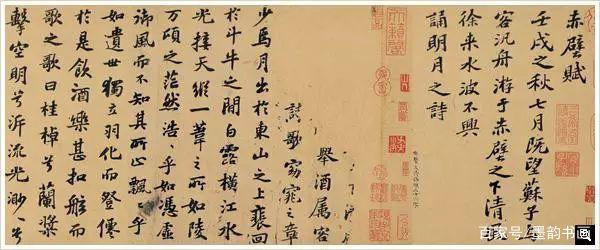 赤壁賦
壬戌之秋七月既望蘇子与
客汎舟游于赤壁之下清風
徐来水波不興
誦明月之詩
舉酒属客
歌窈窕之章
少焉月出於東山之上裵回
於斗牛之間白露横江水
光接天縱一葦之所如陵
万頃之茫然浩浩乎如憑虚
御風而不知其所止飄飄乎
如遺世獨立羽化而登僊
於是飲酒樂甚扣舷而
歌之歌曰桂棹兮蘭槳
擊空明兮泝流光渺渺兮
百家号/墨韵书画